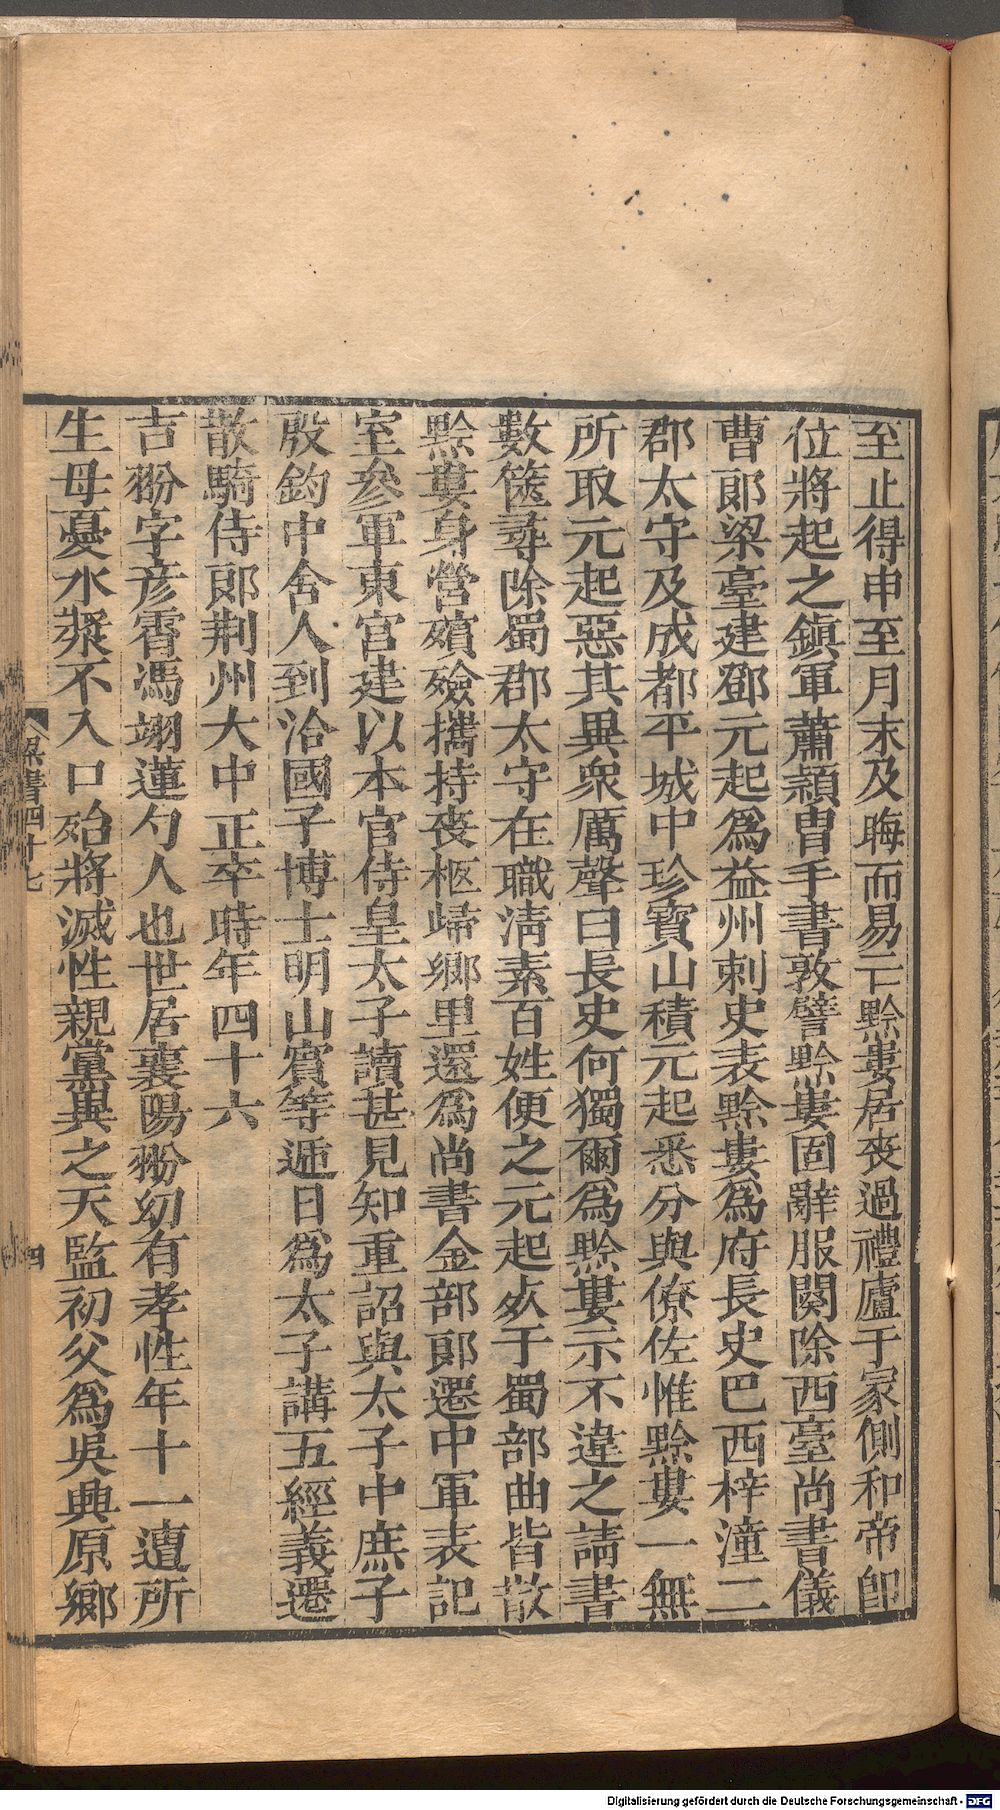 至止得申至月末及晦而易亡黔婁居丧過禮廬于冢側和帝卽
位將起之鎮軍蕭穎胄手書敦譬黔婁固辭服闋除西臺尚書儀
曹郞梁臺建鄧元起爲益州刺史表黔婁爲府長史巴西梓潼二
郡太守及成都平城中珍寶山積元起悉分與僚佐惟黔婁一無
所取元起惡其異衆厲聲曰長史何獨爾爲黔婁示不違之請書
數篋尋除蜀郡太守在職淸素百姓便之元起死于蜀部曲皆散
黔婁身營殯殮攜持丧柩歸鄉里還爲尚書金部郞遷中軍表記
室參軍東宮建以本官侍皇太子讀甚見知重詔與太子中庶子
殷鈞中舍人到洽國子博士明山賓等遞日爲太子講五經義遷
散騎侍郞荆州大中正卒時年四十六
吉翂字彥霄馮翊蓮勺人也世居襄陽翂幼有孝性年十一遭所
生母憂水漿不入口殆將滅性親黨異之天監初父爲吳興原鄉
梁書四十七
四
Digitalisierung gefördert durch die Deutsche Forschungsgemeinschaft - DFG